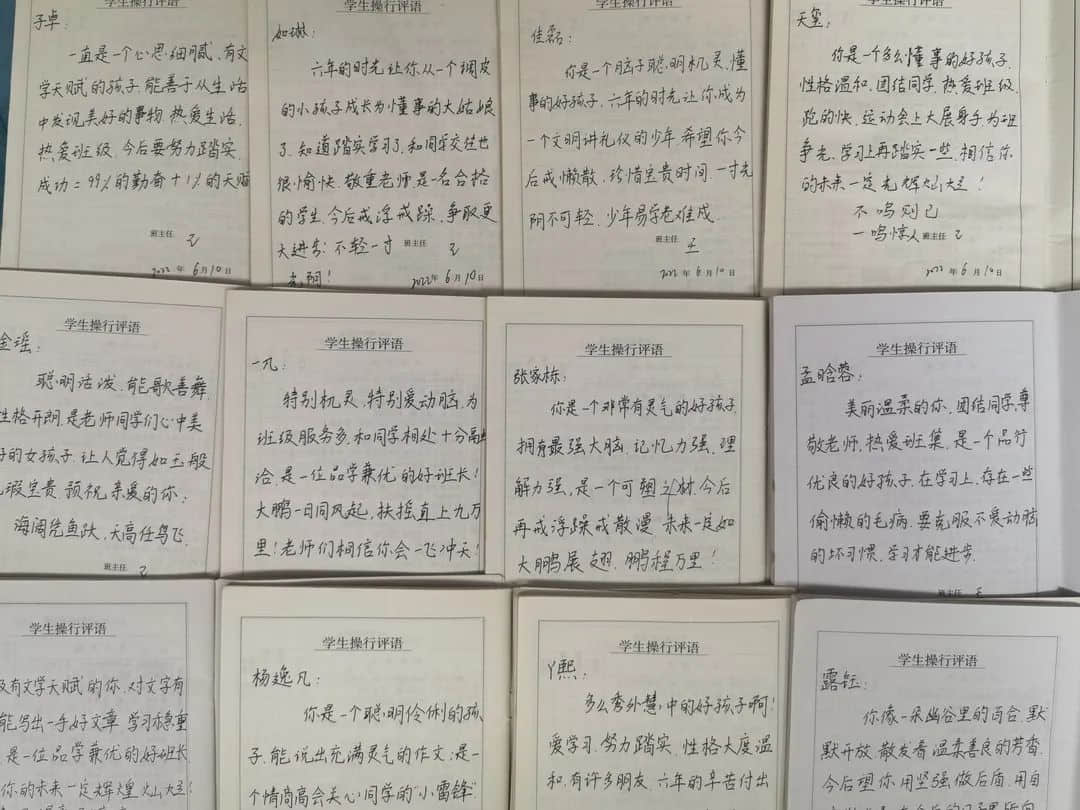 学生操行评语
子卓:
一直是一个心思细腻,有文
学天赋的孩子,能善于从生活
中发现美好的事物,热爱生活,
热爱班级,今后要努力踏实,
成功=99%的勤奋+1%的天赋
班主任 王
2022年6月10日
学生操行评语
如琳:
六年的时光让你从一个调皮
的小孩子成长为懂事的大姑娘
了,知道踏实学习了,和同学交往也
很愉快,敬重老师,是一名合格
的学生,今后戒浮戒躁,争取更
大进步!不轻一寸
光阴!
班主任 王
2022年6月10日
学生操行评语
佳磊:
你是一个脑子聪明机灵,懂
事的好孩子,六年的时光让你成为
一个文明讲礼仪的少年,希望你今
后戒懒散,珍惜宝贵时间,一寸光
阴不可轻,少年易学老难成.
班主任 王
2022年6月10日
学生操行评语
天玺:
你是一个多么懂事的好孩子,
性格温和,团结同学,热爱班级,
跑的快,运动会上大展身手,为班
争光,学习上再踏实一些,相信你
的未来一定光辉灿烂!
不鸣则已
一鸣惊人
班主任 王
2022年6月10日
学生操行评语
金瑶:
聪明活泼,能歌善舞,
性格开朗,是老师同学们心中美
好的女孩子,让人觉得如玉般
无瑕宝贵,预祝亲爱的你:
海阔凭鱼跃,天高任鸟飞.
班主任 王
学生操行评语
一凡:
特别机灵,特别爱动脑,为
班级服务多,和同学相处十分融
洽,是一位品学兼优的好班长!
大鹏一日同风起,扶摇直上九万
里!老师们相信你会一飞冲天!
学生操行评语
张家栋:
你是一个非常有灵气的好孩子,
拥有最强大脑,记忆力强,理
解力强,是一个可塑之材,今后
再戒浮躁戒散漫,未来一定如
大鹏展翅,鹏程万里!
学生操行评语
孟晗蓉:
美丽温柔的你,团结同学,尊
敬老师,热爱班集,是一个品行
优良的好孩子,在学习上,存在一些
偷懒的毛病,要克服不爱动脑
的坏习惯,学习才能进步.
班主任 王
学生操行评语
及有文学天赋的你,对文字有
能写出一手好文章,学习稳重
是一位品学兼优的好班长
你的未来一定辉煌灿烂!
学生操行评语
杨逸凡:
你是一个聪明伶俐的孩
子,能说出充满灵气的作文,是一
个情尚高会关心同学的"小雷锋"
学生操行评语
丫熙:
多么秀外慧中的好孩子啊!
爱学习,努力踏实,性格大度温
和,有许多朋友,六年的辛苦付出
学生操行评语
露钰:
你像一朵幽谷里的百合,默
默开放,散发着温柔善良的芳香
今后望你用坚强做后盾,用自